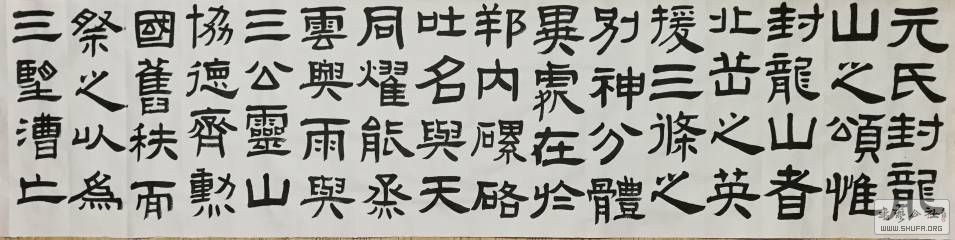 元氏封龍
山之頌惟
封龍山者
北岳之英
援三條之
别神分體
異處在於
邦内磥硌
吐名與天
同燿能烝
雲興雨與
三公靈山
協德齊勳
國舊秩而
祭之以為
三朢漕亡
WWW.SHUFA.ORG